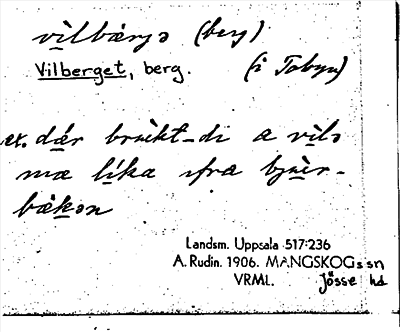 vìlbærjə (berg)
Vilberget, berg. (i Tobyn)
ex. dár brùkt-di a vìlə
mæ líka ifrå bjùər-
bækən
Landsm. Uppsala 517:236
A. Rudin. 1906. MANGSKOGs sn
VRML. Jösse hd